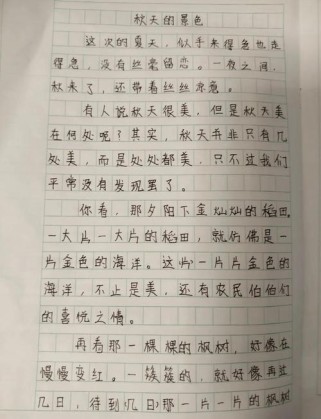 秋天的景色
这次的夏天，似乎来得急也走
得急，没有丝毫留恋。一夜之间，
秋来了，还带着丝丝凉意。
有人说秋天很美，但是秋天美
在何处呢？其实，秋天并非只有几
处美，而是处处都美，只不过我们
平常没有发现罢了。
你看，那夕阳下金灿灿的稻田，
一大片一大片的稻田，就仿佛是一
片金色的海洋。这片一片片金色的
海洋，不止是美，还有农民伯伯们
的喜悦之情。
再看那一棵棵的枫树，好像在
慢慢变红。一簇簇的，就好像再过
几日，待到几日那一片一片的枫树